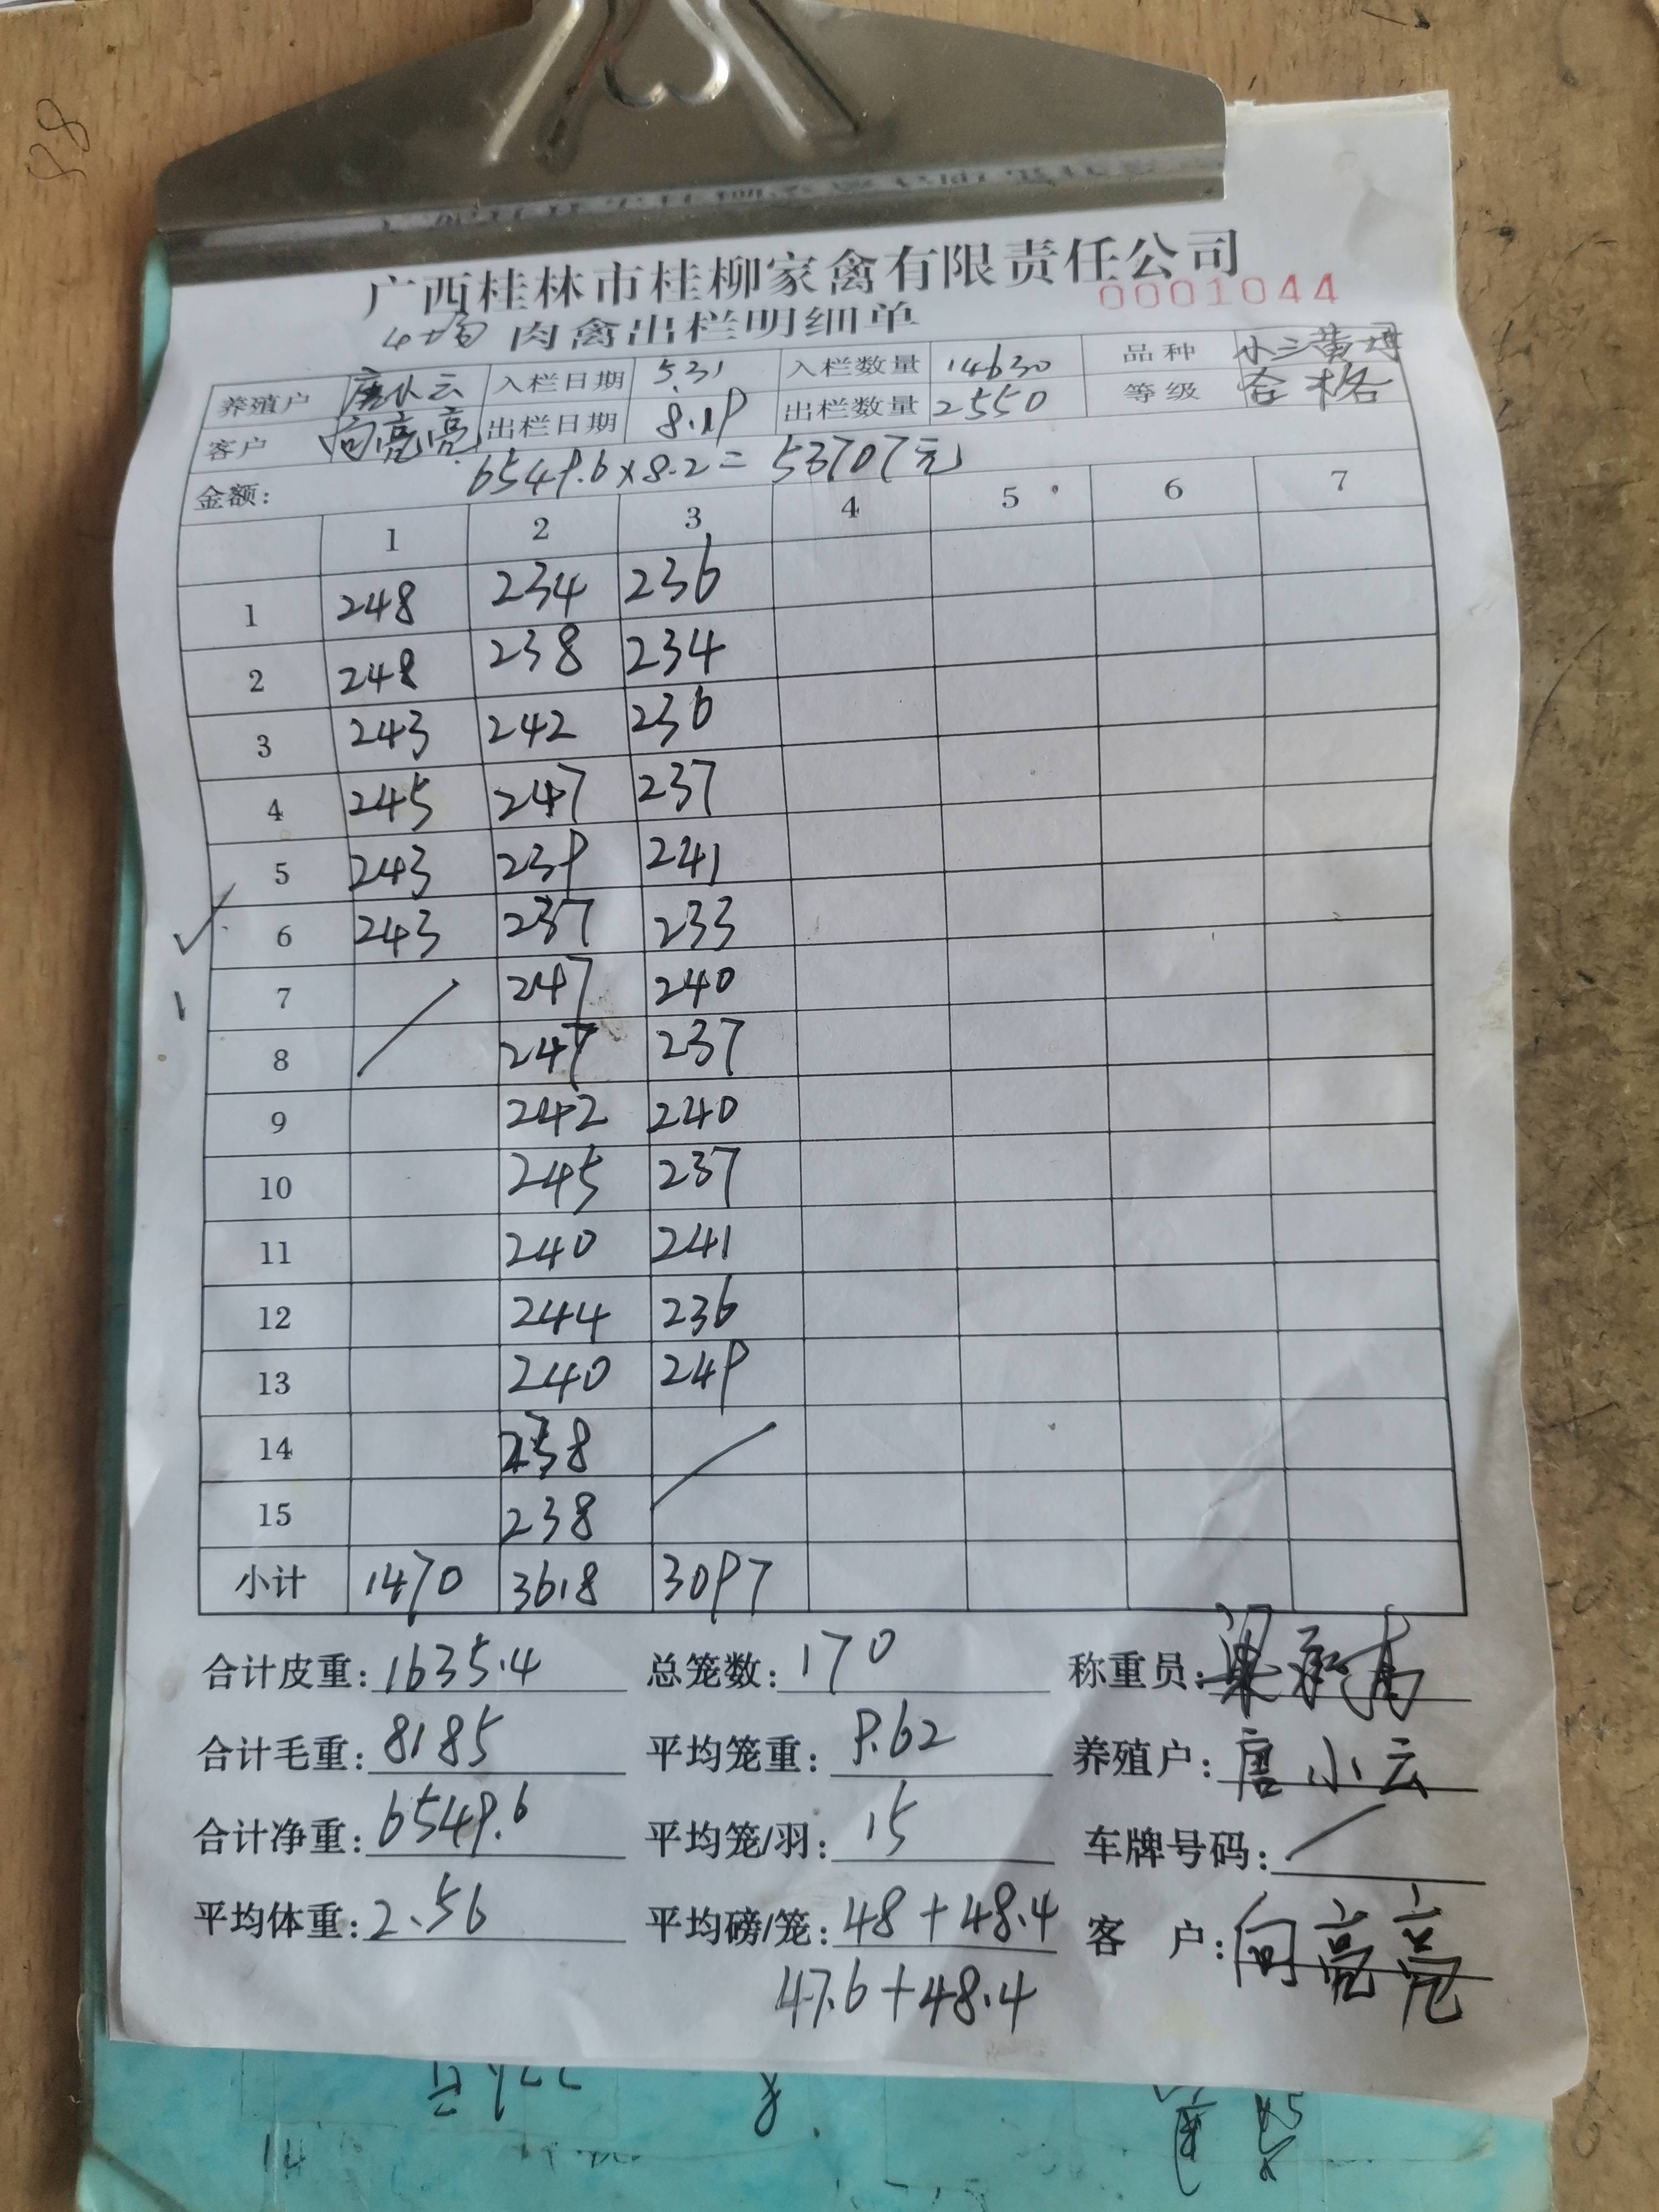 广西桂林市桂柳家禽有限责任公司
0001044
4场 肉禽出栏明细单
养殖户 唐小云 入栏日期 5.31 入栏数量 14630 品种 小三黄项
客户 向亮亮 出栏日期 8.19 出栏数量 2550 等级 合格
金额: 6549.6×8.2=53707元
1 2 3 4 5 6 7
1 248 234 236
2 248 238 234
3 243 242 236
4 245 247 237
5 243 239 241
6 243 237 233
7 247 240
8 247 237
9 242 240
10 245 237
11 240 241
12 244 236
13 240 249
14 238
15 238
小计 1470 3618 3097
合计皮重: 1635.4 总笼数: 170 称重员:
合计毛重: 8185 平均笼重: 9.62 养殖户: 唐小云
合计净重: 6549.6 平均笼/羽: 15 车牌号码: /
平均体重: 2.56 平均磅/笼: 48+48.4 客 户: 向亮亮
47.6+48.4
14